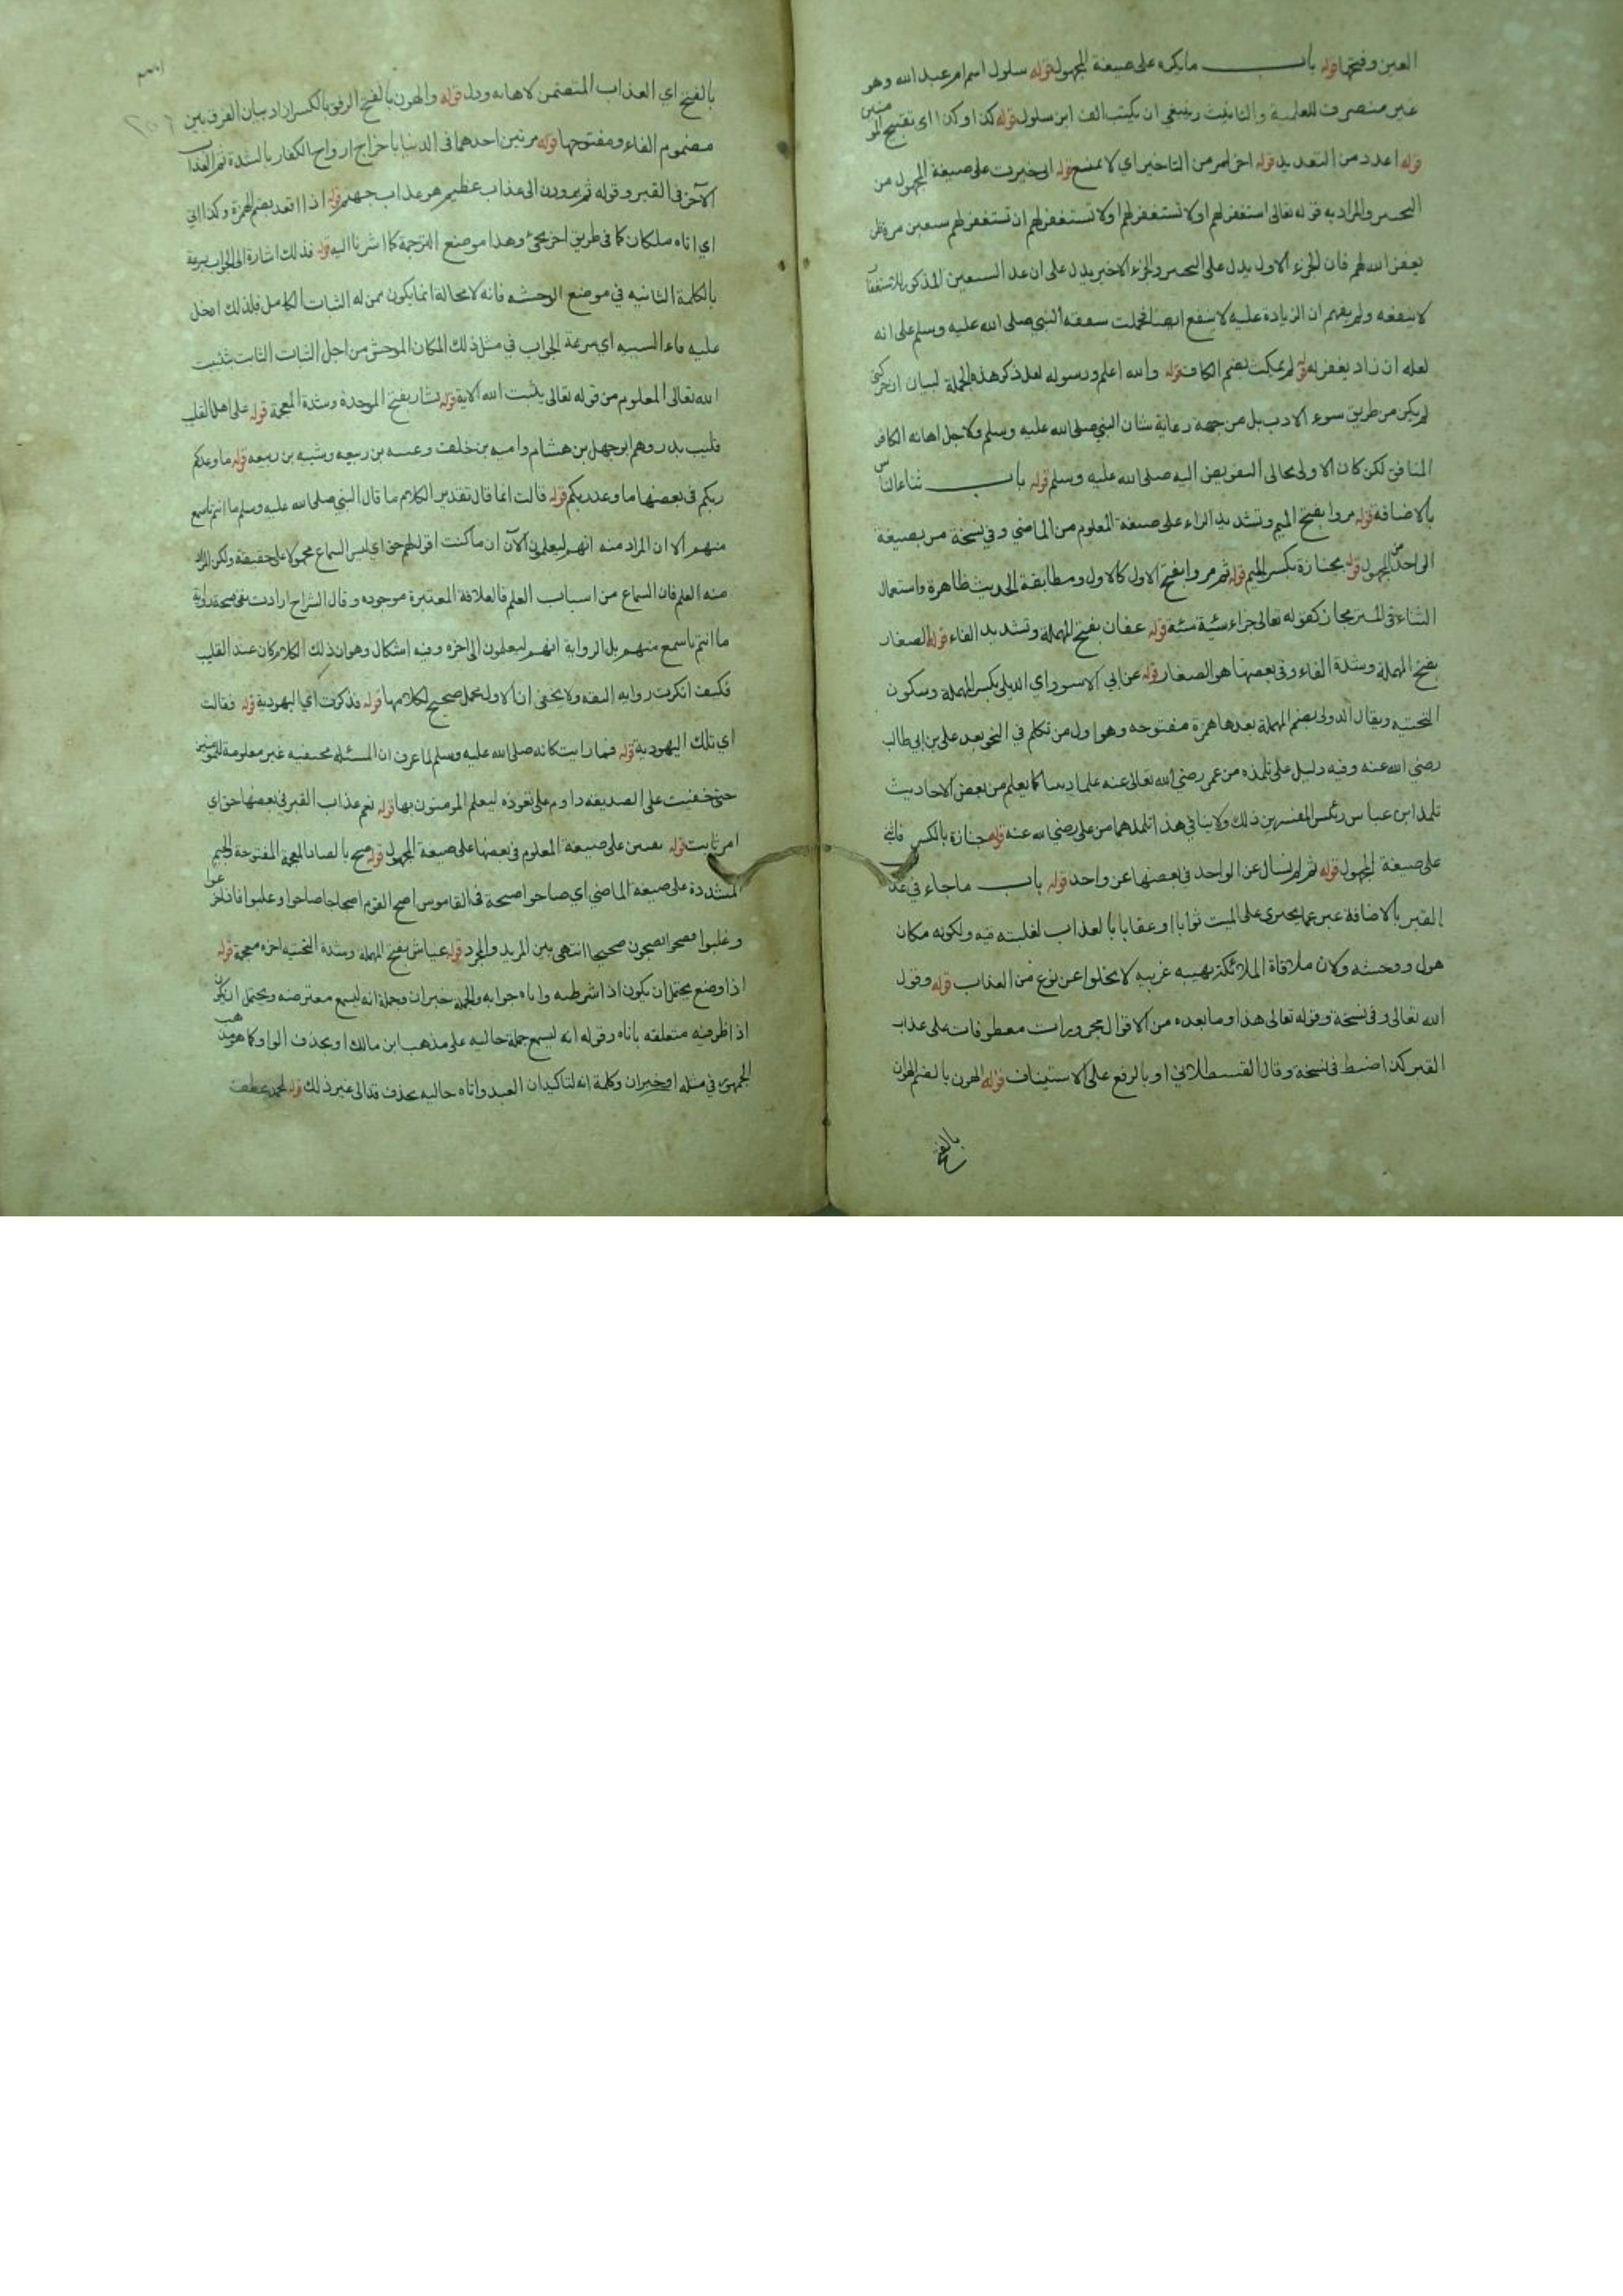 العين وفتحها قوله باب ما يكره على صيغة المجهول قوله سلول اسم ام عبد الله وهو
غير منصرف للعلمية والتانيث وينبغي ان يكتب الف ابن سلول قوله كذا وكذا اي تقبيح المؤمنين
قوله اعدد من التعديد قوله اخر امر من التاخير اي لا تمنع قوله اني خيرت على صيغة المجهول من
التخيير والمراد به قوله تعالى استغفر لهم او لا تستغفر لهم او لا تستغفر لهم ان تستغفر لهم سبعين مرة فلن
يغفر الله لهم فان الجزء الاول يدل على التخيير والجزء الاخير يدل على ان عدد السبعين المذكور للاستغفار
لا ينفعه ولم يفهم ان الزيادة عليه لا ينفع ايضا فحملت شفقة النبي صلى الله عليه وسلم على انه
لعله ان زاد يغفر له قوله لم يمكث بضم الكاف قوله والله اعلم ورسوله لعل ذكر هذه الجملة لبيان ان
لم يكن من طريق سوء الادب بل من جهة رعاية شان النبي صلى الله عليه وسلم ولاجل اهانة الكافر
المنافق لكن كان الاولى بحالي التفويض اليه صلى الله عليه وسلم قوله باب ثناء الناس
بالاضافة قوله مروا بفتح الميم وتشديد الراء على صيغة المعلوم من الماضي وفي نسخة مر بصيغة
الواحد من المجهول قوله بجنازة بكسر الجيم قوله ثم مروا بفتح الاول كالاول ومطابقة الحديث ظاهرة واستعمال
الثناء في الشر مجاز كقوله تعالى جزاء سيئة سيئة قوله عفان بفتح المهملة وتشديد الفاء قوله الصفار
بفتح المهملة وشدة الفاء وفي بعضها هو الصفار قوله عن ابي الاسود اي الديلي بكسر المهملة وسكون
التحتية ويقال الدولي بضم المهملة بعدها همزة مفتوحة وهو اول من تكلم في النحو بعد علي بن ابي طالب
رضي الله عنه وفيه دليل على تلمذه من عمر رضي الله تعالى عنه علما كما يعلم من بعض الاحاديث
تلمذ ابن عباس رئيس المفسرين ذلك ولا ينافي هذا تلمذهما من علي رضي الله عنه قوله جنازة بالكسر فاثني
على صيغة المجهول قوله ثم لم نسال عن الواحد في بعضها عن واحد قوله باب ما جاء في عذاب
القبر بالاضافة عبر عما يجري على الميت ثوابا او عقابا بالعذاب لغلبته فيه ولكونه مكان
هول ووحشة ولان ملاقاة الملائكة بهيبه غريبه لا يخلو عن نوع من العذاب قوله وقول
الله تعالى وفي نسخة وقوله تعالى هذا وما بعده من الاقوال مجرورات معطوفات على عذاب
القبر كذا ضبط في نسخة وقال القسطلاني او بالرفع على الاستيناف قوله الهون بالضم الهوان
بالفتح
بالفتح اي العذاب المتضمن لاهانة وذل قوله والهون بالفتح الرفق بالكسر اراد بيان الفرق بين
مضموم الفاء ومفتوحها قوله مرتين احدهما في الدنيا باخراج ارواح الكفار بالشدة ثم العذاب
الآخر في القبر وقوله ثم يردون الى عذاب عظيم هو عذاب جهنم قوله اذا اقعد بضم الهمزة وكذا اتي
اي اتاه ملكان كما في طريق اخر يجئ وهذا موضع الترجمة كما اشرنا اليه قوله فذلك اشارة الى الجواب بسرعة
بالكلمة الثانيه في موضع الوحشه فانه لا محالة انما يكون ممن له الثبات الكامل فلذلك ادخل
عليه فاء السببيه اي سرعة الجواب في مثل ذلك المكان الموحش من اجل الثبات الثابت بتثبيت
الله تعالى المعلوم من قوله تعالى يثبت الله الاية قوله بشار بفتح الموحدة وشدة المعجمة قوله على اهل القليب
قليب بدر وهم ابو جهل بن هشام وامية بن خلف وعتبه بن ربيعه وشيبه بن ربيعه قوله ما وعدكم
ربكم في بعضها ما وعد ربكم قوله قالت انما قال تقدير الكلام ما قال النبي صلى الله عليه وسلم ما انتم باسمع
منهم الا ان المراد منه انهم ليعلمون الآن ان ما كنت اقول لهم حق اي ليس السماع محمولا على حقيقته ولكن المراد
منه العلم فان السماع من اسباب العلم فالعلاقة المعتبرة موجوده وقال الشراح ارادت بنفي صحة رواية
ما انتم باسمع منهم بل الرواية انهم ليعلمون الى اخره وفيه اشكال وهو ان ذلك الكلام كان عند القليب
فكيف انكرت رواية الثقة ولا يخفى ان الاول محمل صحيح لكلامها قوله فذكرت اي اليهودية قوله فقالت
اي تلك اليهودية قوله فما رايت كانه صلى الله عليه وسلم لما عرف ان المسئلة مخفيه غير معلومة للمؤمنين
حتى خفيت على الصديقه داوم على تعوذه ليعلم المؤمنون بها قوله نعم عذاب القبر في بعضها حق اي
امر ثابت قوله يفتن على صيغة المعلوم في بعضها على صيغة المجهول قوله ضج بالضاد المعجمة المفتوحة والجيم
المشددة على صيغة الماضي اي صاحوا صيحة في القاموس اضج القوم اضجاجا صاحوا وجلبوا فاذا جزعوا
وغلبوا فضجوا يضجون ضجيجا انتهى بين المزيد والمجرد قوله عياش بفتح المهملة وشدة التحتيه اخره معجمة قوله
اذا وضع يحتمل ان يكون اذا شرطيه واتاه جوابه والجملة خبر ان وجملة انه ليسمع معترضه ويحتمل ان يكون
اذا ظرفيه متعلقه باتاه وقوله انه ليسمع جملة حاليه على مذهب ابن مالك او بحذف الواو كما هو مذهب
الجمهور في مثله او خبر ان وكلمة انه لتاكيد ان العبد واتاه حاليه بحذف قد الى غير ذلك قوله لمحمد عطف